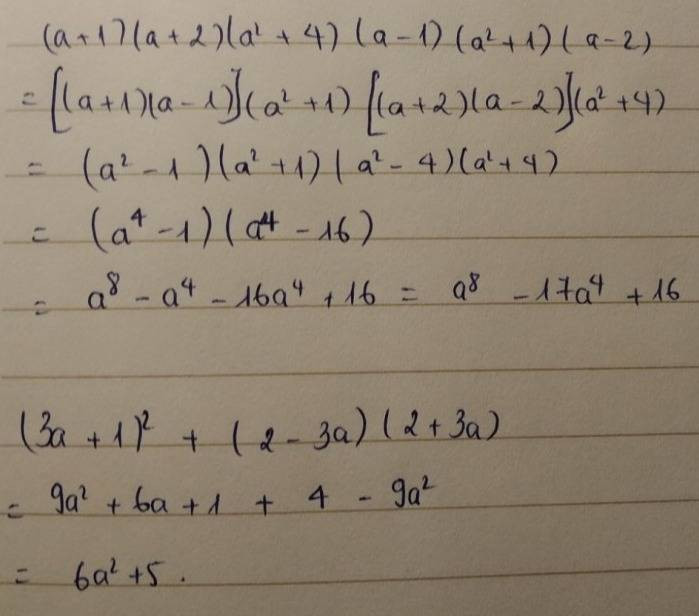 (a+1)(a+2)(a²+4)(a-1)(a²+1)(a-2)
= [(a+1)(a-1)](a²+1)[(a+2)(a-2)](a²+4)
= (a²-1)(a²+1)(a²-4)(a²+4)
= (a⁴-1)(a⁴-16)
= a⁸ - a⁴ - 16a⁴ + 16 = a⁸ - 17a⁴ + 16
(3a+1)² + (2-3a)(2+3a)
= 9a² + 6a + 1 + 4 - 9a²
= 6a² + 5.